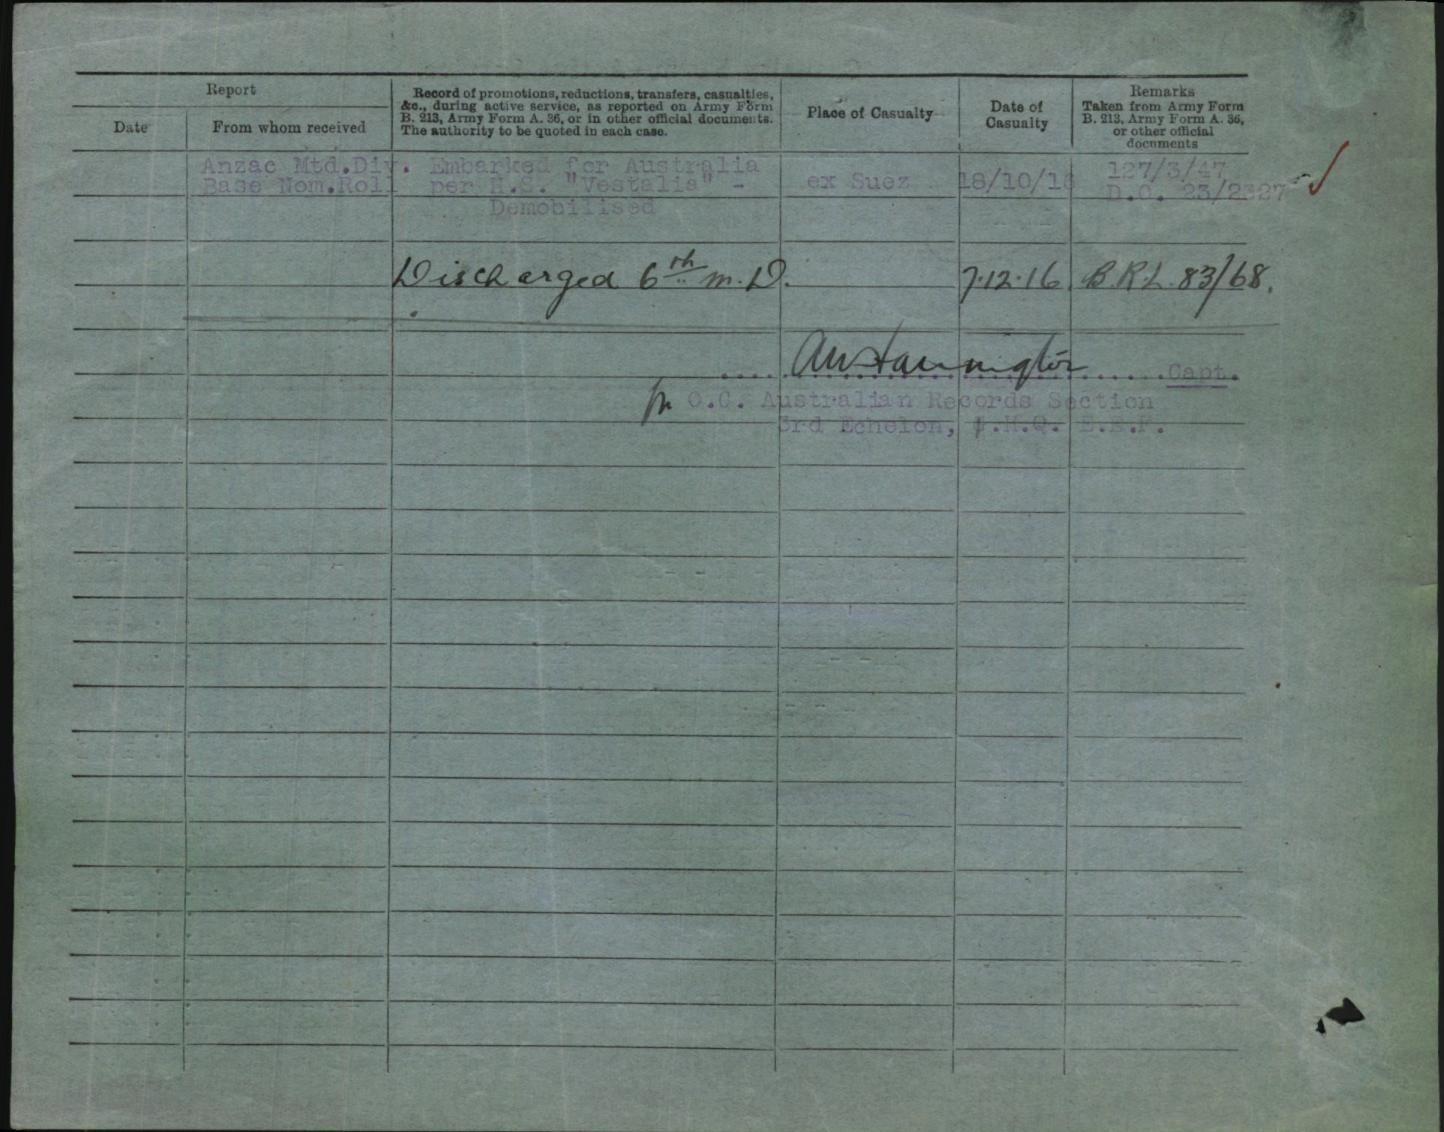 Report
Date
From whom received
Record of promotions, reductions, transfers, casualties,
&c., during active service, as reported on Army Form
B. 213, Army Form A. 36, or in other official documents.
The authority to be quoted in each case.
Place of Casualty
Date of
Casualty
Remarks
Taken from Army Form
B. 213, Army Form A. 36,
or other official
documents
Anzac Mtd.Div.
Base Nom.Roll
Embarked for Australia
per H.S. "Vestalia" -
Demobilised
ex Suez
18/10/16
127/3/47
D.O. 23/2327
Discharged 6th M.D.
7.12.16
B.R.L. 83/68.
Capt.
O.C. Australian Records Section
3rd Echelon, G.H.Q. E.E.F.